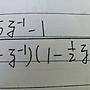 5z⁻¹ - 1
- z⁻¹)(1 - ½ z